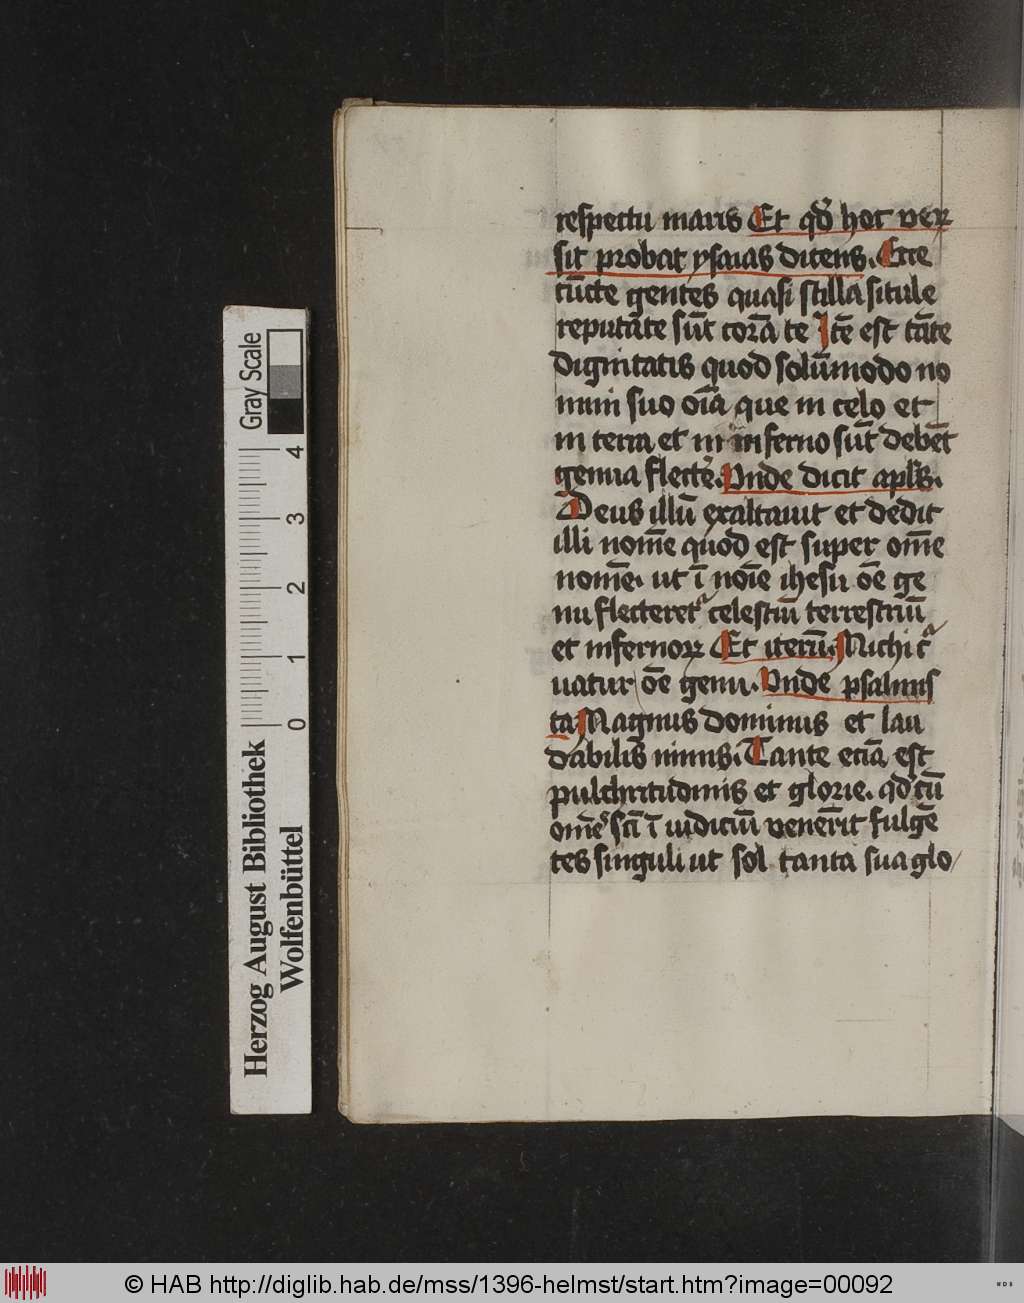 respectu maris Et qd̄ hoc ver
sit probat ysaias dicens. Ecce
cūcte gentes quasi stilla situle
reputate sūt corā te Itē est tāte
dignitatis quod solūmodo no
mini suo oīa que in celo et
in terra et in inferno sūt debēt
genua flecte͛. Unde dicit apl's.
Deus illū exaltauit et dedit
illi nomē quod est super omē
nomē. ut ī noīe ihesu oē ge
nu flecteret᷑ celestiū terrestriū
et infernoꝝ Et iterū. Michi c᷑
uatur oē genu. Unde psalmis
ta Magnus dominus et lau
dabilis nimis. Tante eciā est
pulchritudinis et glorie. qd cū
omēs scī ī iudiciū venerīt fulgē
tes singuli ut sol tanta sua glo
Gray Scale
4
3
2
1
0
Herzog August Bibliothek
Wolfenbüttel
© HAB http://diglib.hab.de/mss/1396-helmst/start.htm?image=00092